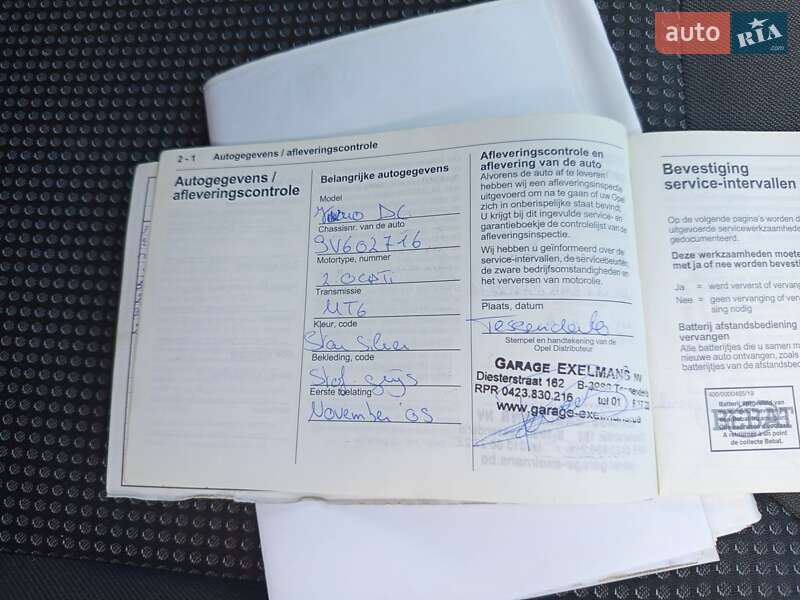 auto RIA .com
2 - 1 Autogegevens / afleveringscontrole
Autogegevens /
afleveringscontrole
Belangrijke autogegevens
Model
DC
Chassisnr. van de auto
5V602716
Motortype, nummer
2.0CDTi
Transmissie
MT6
Kleur, code
Star Silver
Bekleding, code
Stof grijs
Eerste toelating
November '05
Afleveringscontrole en
aflevering van de auto
Alvorens de auto af te leveren
hebben wij een afleveringsinspectie
uitgevoerd om na te gaan of uw Opel
zich in onberispelijke staat bevindt.
U krijgt bij dit ingevulde service- en
garantieboekje de controlelijst van de
afleveringsinspectie.
Wij hebben u geïnformeerd over de
service-intervallen, de servicebeurten,
de zware bedrijfsomstandigheden en
het verversen van motorolie.
Plaats, datum
Tessenderlo
Stempel en handtekening van de
Opel Distributeur
GARAGE EXELMANS NV
Diesterstraat 162 B-3980 Tessenderlo
RPR 0423.830.216 tel 01
www.garage-exelmans.be
Bevestiging
service-intervallen
Op de volgende pagina's worden d
uitgevoerde servicewerkzaamhede
gedocumenteerd.
Deze werkzaamheden moete
met ja of nee worden bevesti
Ja = werd ververst of vervang
Nee = geen vervanging of verv
sing nodig
Batterij afstandsbediening
vervangen
Alle batterijen die u samen m
nieuwe auto ontvangen, zoals
batterij
400/0000485/19
BEBAT
A retourner à un point
de collecte Bebat.